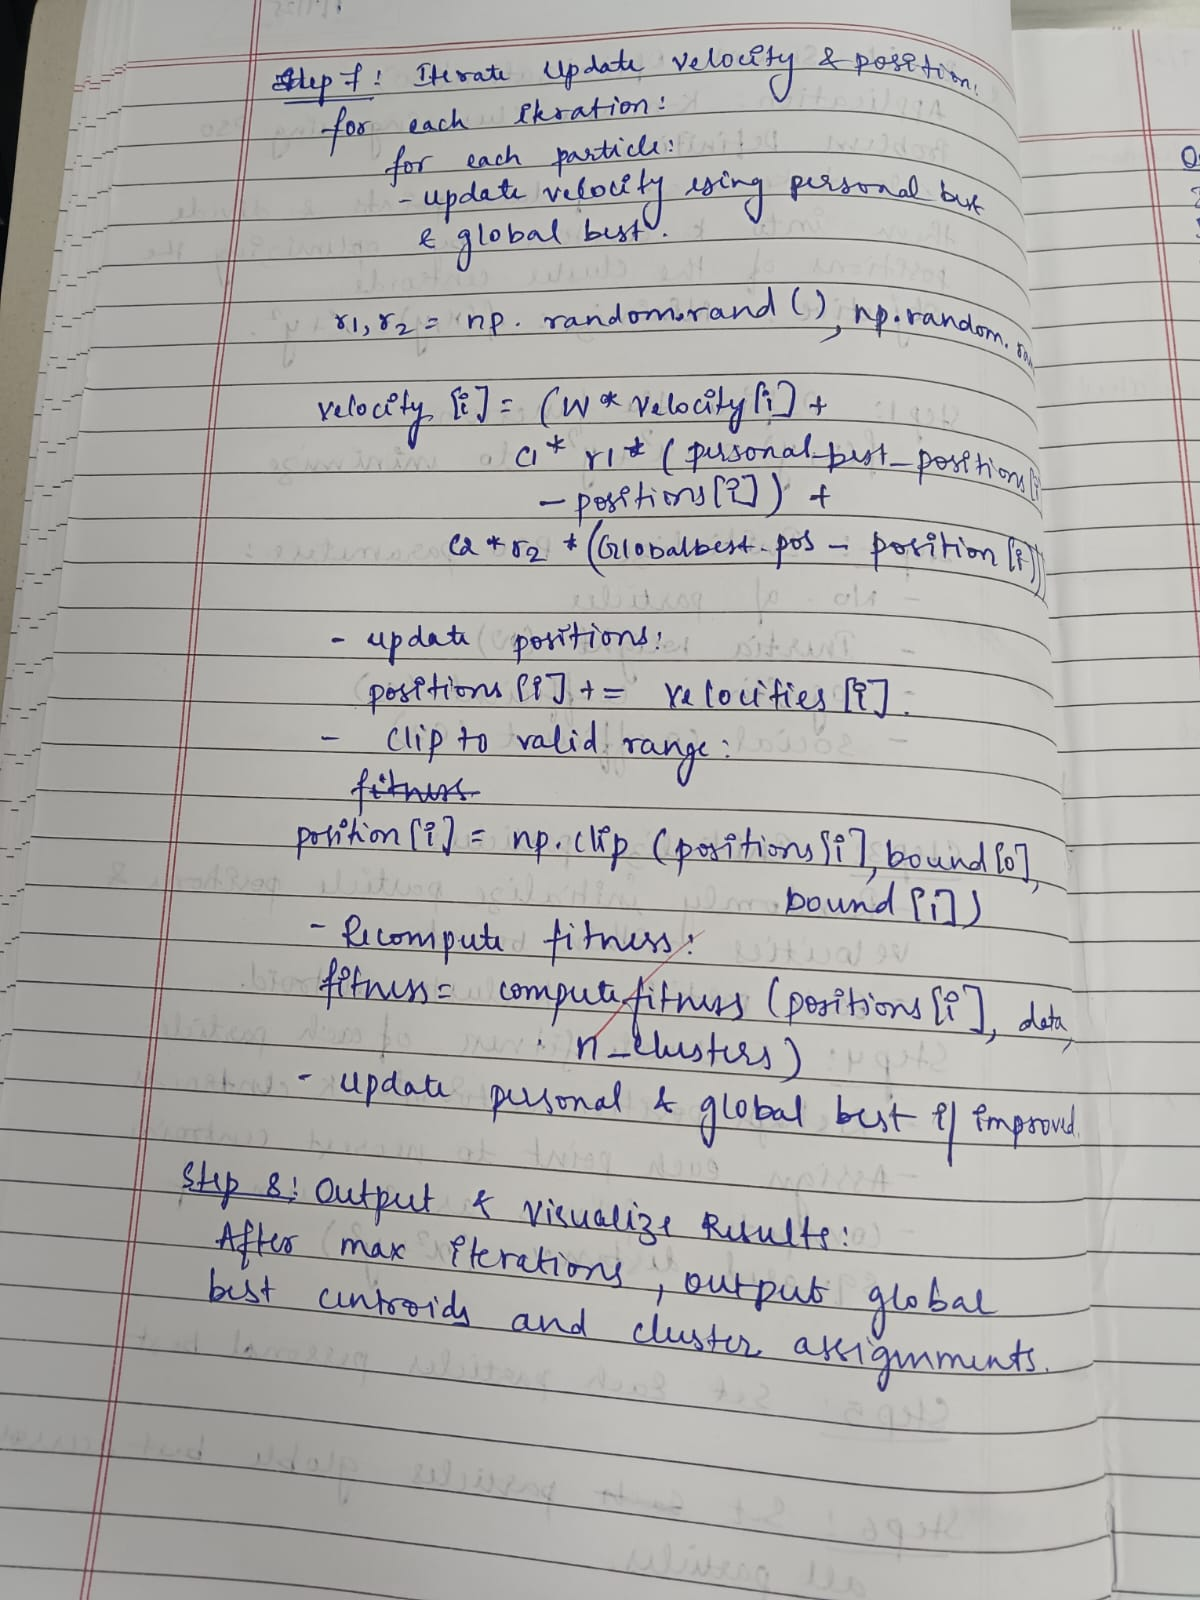 Step 7: Iterate Update velocity & position:
for each iteration:
for each particle:
- update velocity using personal best
& global best.
r1, r2 = np. random.rand (), np.random.
velocity [i] = (W * velocity[i] +
c1 * r1 * (personal_best_positions[i]
- positions[i]) +
c2 * r2 * (Globalbest-pos - position [i]))
- update positions:
positions [i] += velocities [i].
- Clip to valid range:
fitness
position [i] = np.clip (positions[i], bound[0],
bound [i])
- Recompute fitness:
fitness = compute_fitness (positions[i], data,
n_clusters)
- update personal & global best if improved.
Step 8: Output & Visualize Results:
After max iterations, output global
best centroids and cluster assignments.